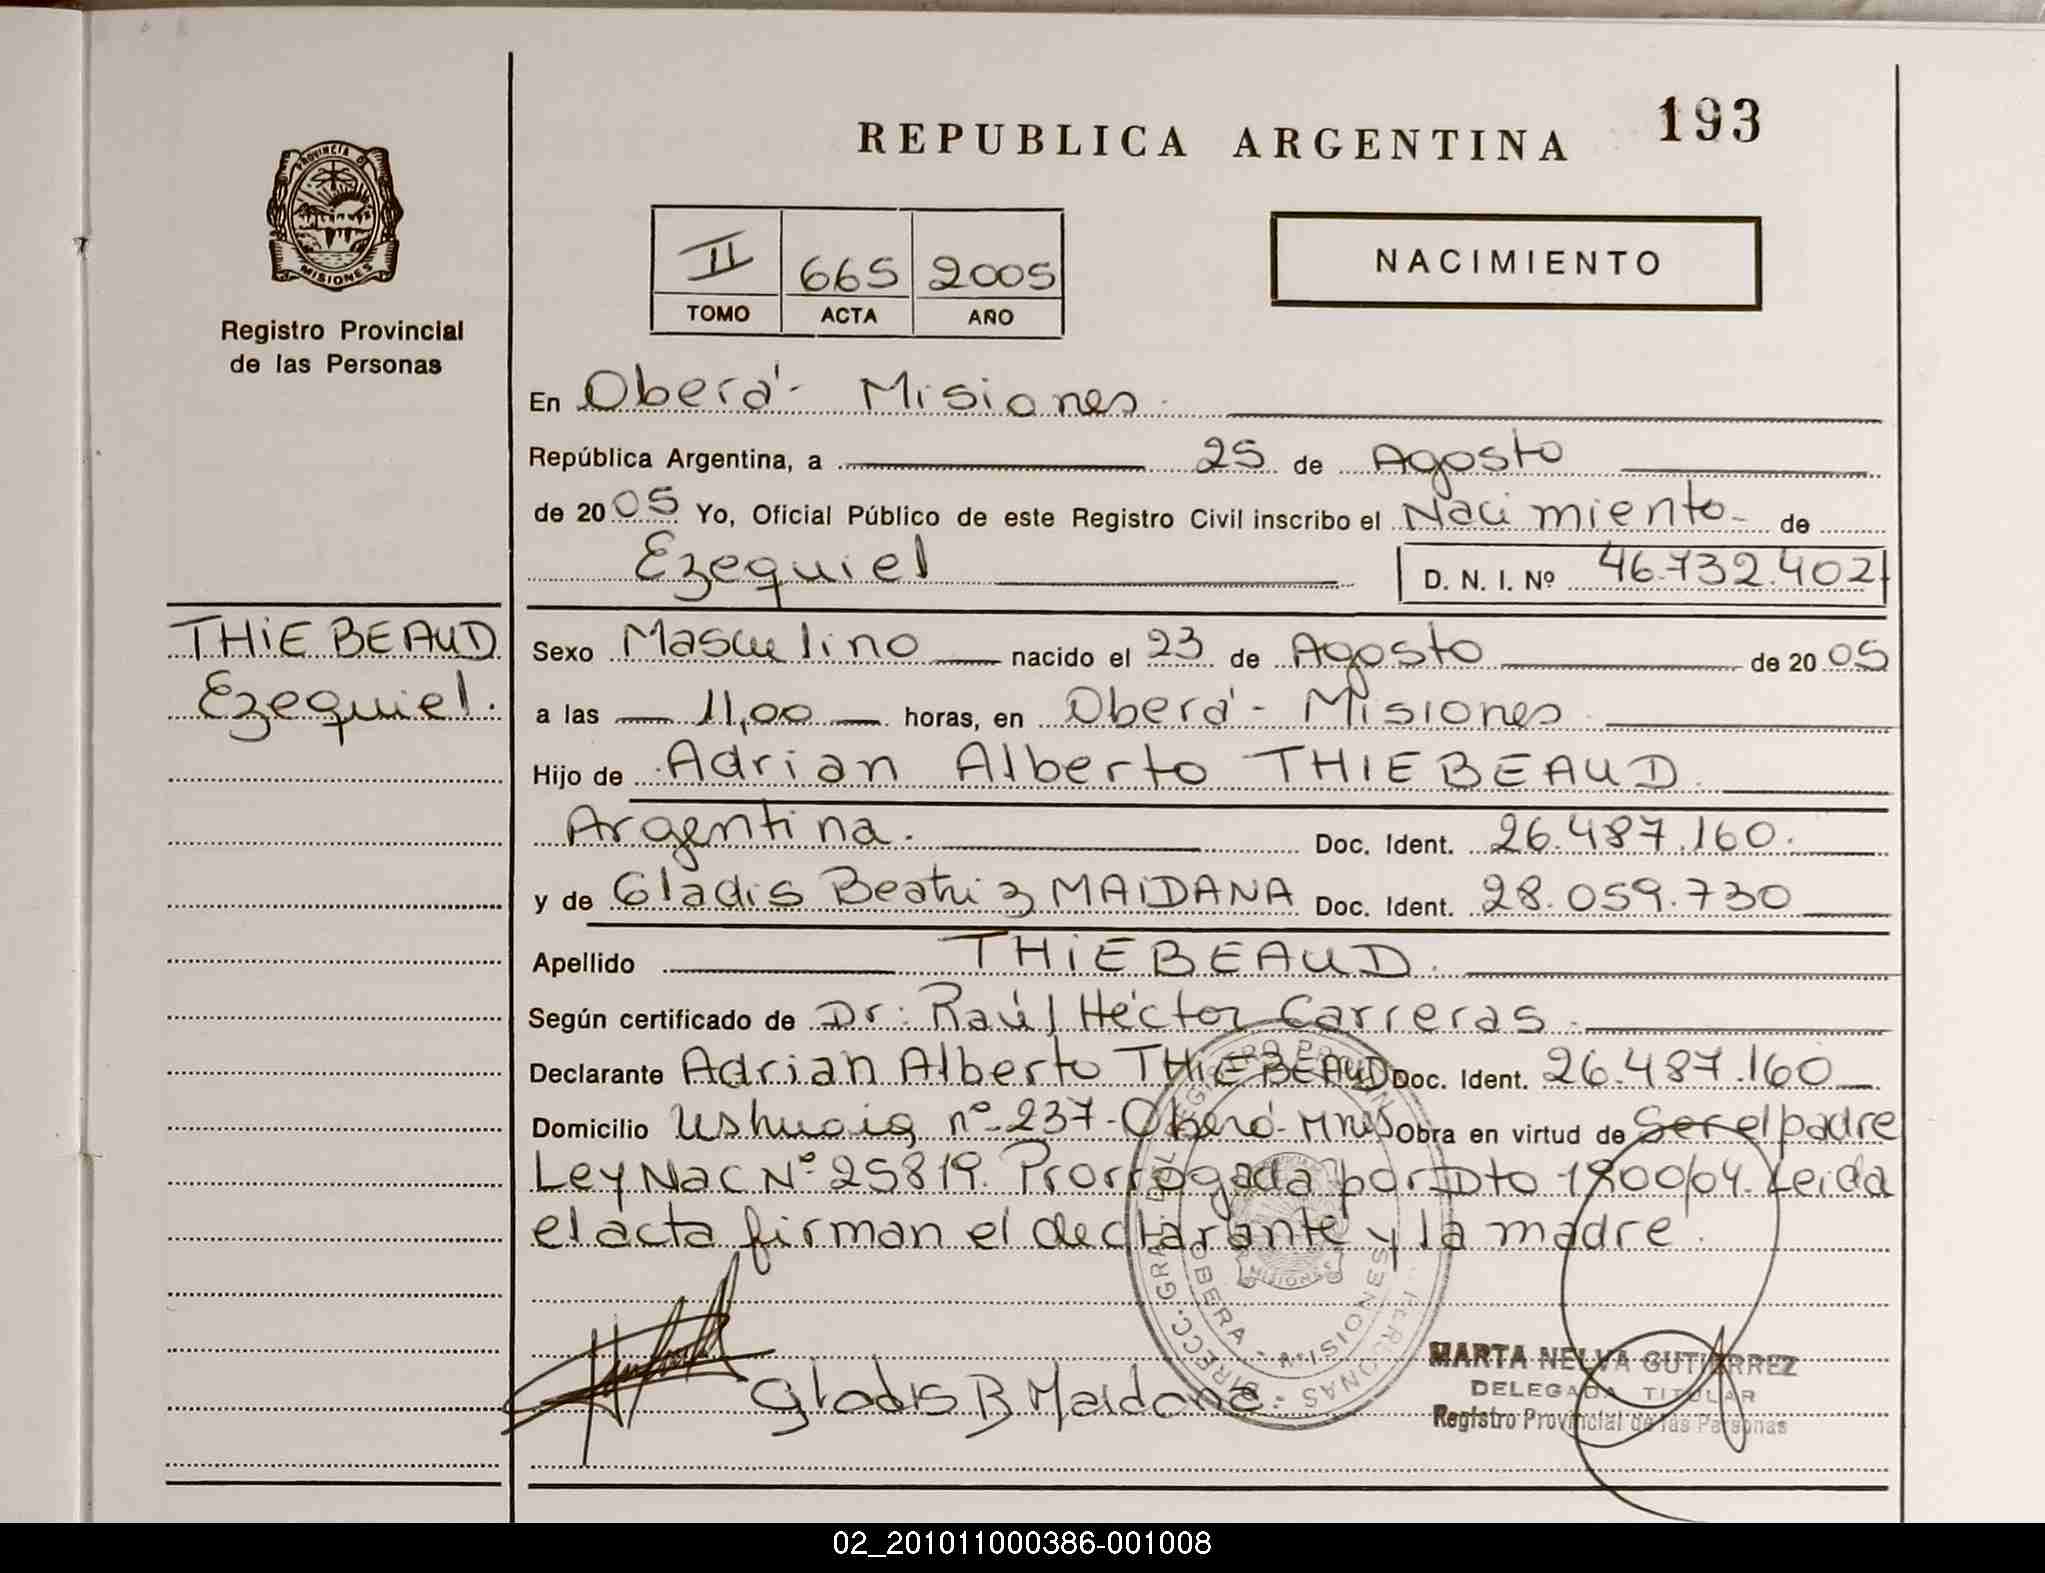 193
REPUBLICA ARGENTINA
PROVINCIA DE
MISIONES
Registro Provincial
de las Personas
II 665 2005
TOMO ACTA AÑO
NACIMIENTO
En Oberá - Misiones.
República Argentina, a 25 de Agosto
de 2005 Yo, Oficial Público de este Registro Civil inscribo el Nacimiento - de
Ezequiel D. N. I. Nº 46.732.402
THIEBEAUD
Ezequiel.
Sexo Masculino nacido el 23 de Agosto de 2005
a las 11,00 horas, en Oberá - Misiones
Hijo de Adrian Alberto THIEBEAUD.
Argentina. Doc. Ident. 26.487.160.
y de Gladis Beatriz MAIDANA Doc. Ident. 28.059.730
Apellido THIEBEAUD.
Según certificado de Dr: Raúl Héctor Carreras.
Declarante Adrian Alberto THIEBEAUD Doc. Ident. 26.487.160
Domicilio Ushuaia nº 237 - Oberá - Mnes Obra en virtud de Ser el padre
Ley Nac Nº 25819. Prorrogada por Dto 1900/04. Leida
el acta firman el declarante y la madre.
Gladis B Maidana
OBERA - MISIONES
MISIONES
MARTA NELVA GUTIERREZ
DELEGADA TITULAR
Registro Provincial de las Personas
02_201011000386-001008